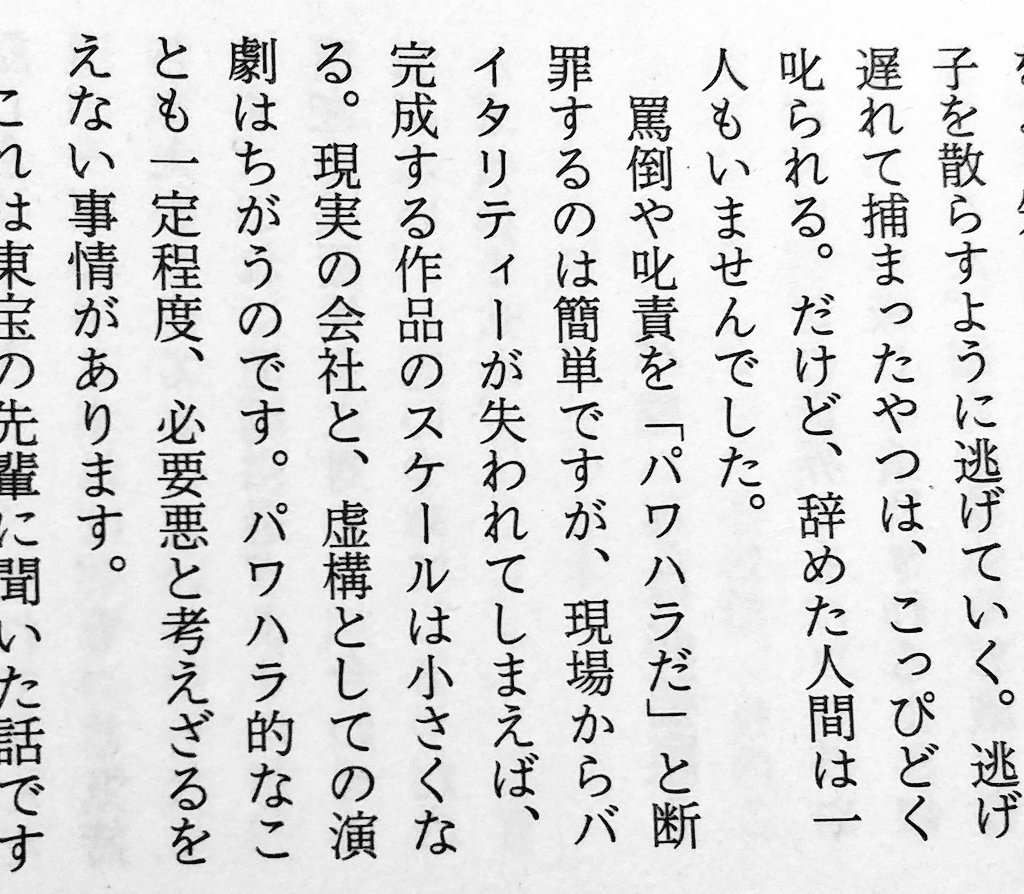 子を散らすように逃げていく。逃げ
遅れて捕まったやつは、こっぴどく
叱られる。だけど、辞めた人間は一
人もいませんでした。
罵倒や叱責を「パワハラだ」と断
罪するのは簡単ですが、現場からバ
イタリティーが失われてしまえば、
完成する作品のスケールは小さくな
る。現実の会社と、虚構としての演
劇はちがうのです。パワハラ的なこ
とも一定程度、必要悪と考えざるを
えない事情があります。
これは東宝の先輩に聞いた話です